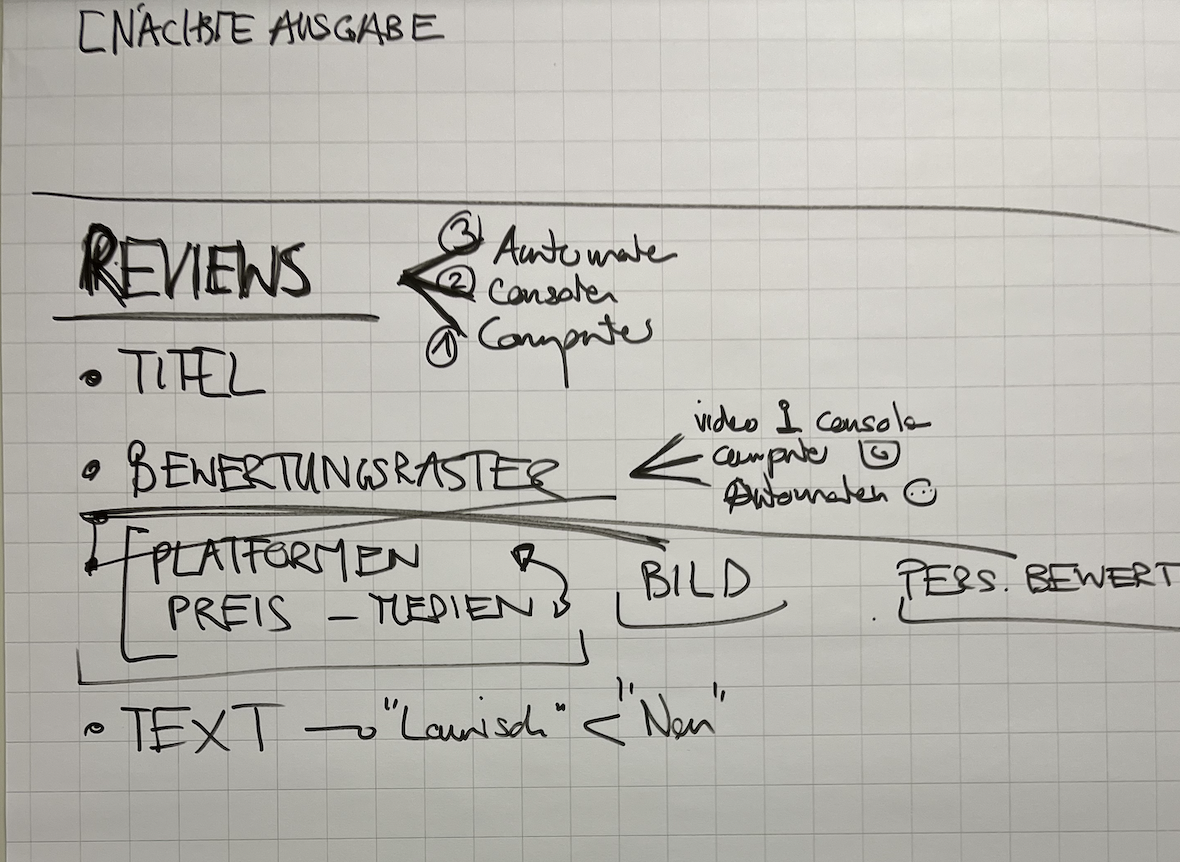 [NÄCHSTE AUSGABE
REVIEWS
③ Automaten
② Consolen
① Computer
• TITEL
• BEWERTUNGSRASTER
video consolen
computer
Automaten
PLATFORMEN
PREIS – MEDIEN
BILD
PERS. BEWERT
• TEXT → "Launisch" < "Neu"